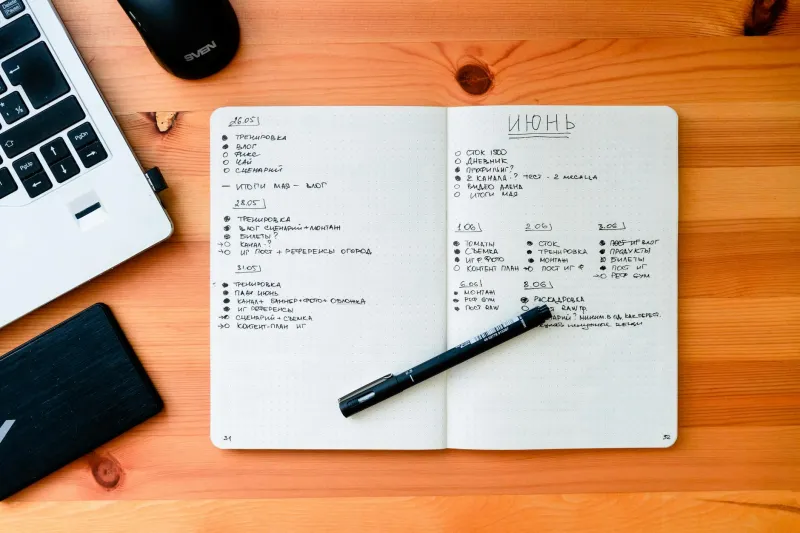 Delete
PgUp
PgDn
SVEN
26.05
ТРЕНИРОВКА
ВЛОГ
ФИКС
ЧАЙ
СЦЕНАРИЙ
— ИТОГИ МАЯ — ВЛОГ
28.05
ТРЕНИРОВКА
ВЛОГ СЦЕНАРИЙ + МОНТАЖ
БИЛЕТЫ?
КАНАЛ - ?
ИГ ПОСТ + РЕФЕРЕНСЫ ОГОРОД
31.05
ТРЕНИРОВКА
ПЛАН ИЮНЬ
КАНАЛ + БАННЕР + ФОТО + ОБЛОЖКА
ИГ РЕФЕРЕНСЫ
СЦЕНАРИЙ + СЪЕМКА
КОНТЕНТ-ПЛАН ИГ
31
ИЮНЬ
СТОК 1500
ДНЕВНИК
ПРОФИЛИНГ?
2 КАНАЛА - ? ТЕСТ - 2 МЕСЯЦА
ВИДЕО ДЛИНА
ИТОГИ МАЯ
1.06
ТОМАТЫ
СЪЕМКА
ИГ # ФОТО
КОНТЕНТ ПЛАН
2.06
СТОК
ТРЕНИРОВКА
МОНТАЖ
ПОСТ ИГ #
3.06
ВЛОГ
ПРОДУКТЫ
БИЛЕТЫ
ПОСТ ИГ
РЕФ GYM
6.06
МОНТАЖ
РЕФ GYM
ПОСТ RAW
8.06
РАСКАДРОВКА
RAW ГР.
32